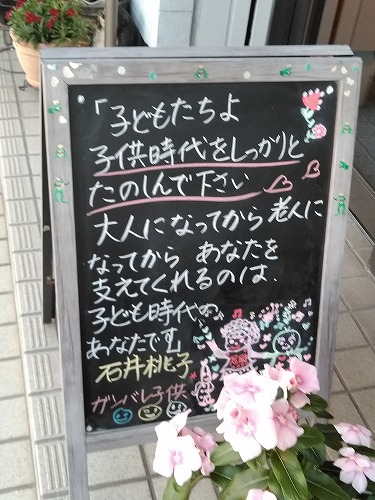 「子どもたちよ
子供時代をしっかりと
たのしんで下さい
大人になってから老人に
なってから あなたを
支えてくれるのは.
子ども時代の
あなたです」
石井桃子
ガンバレ子供